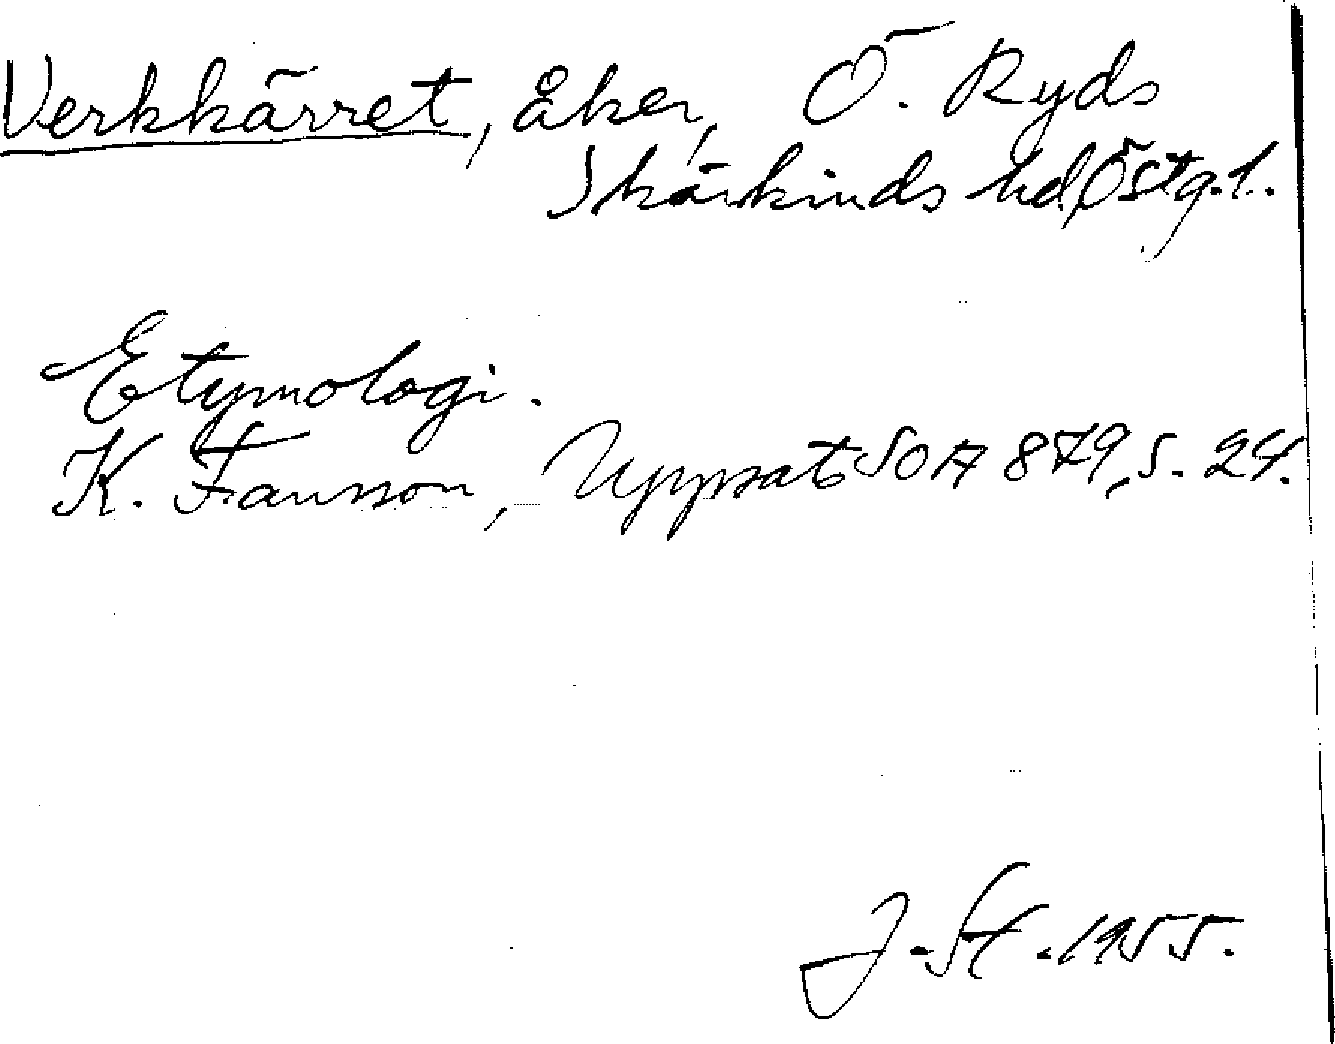 Verkkärret, åker, Ö. Ryds
Skärkinds hd, Östg.l.
Etymologi.
K. Fansson, Uppsats SOA 879, s. 24.
J. St. 1955.